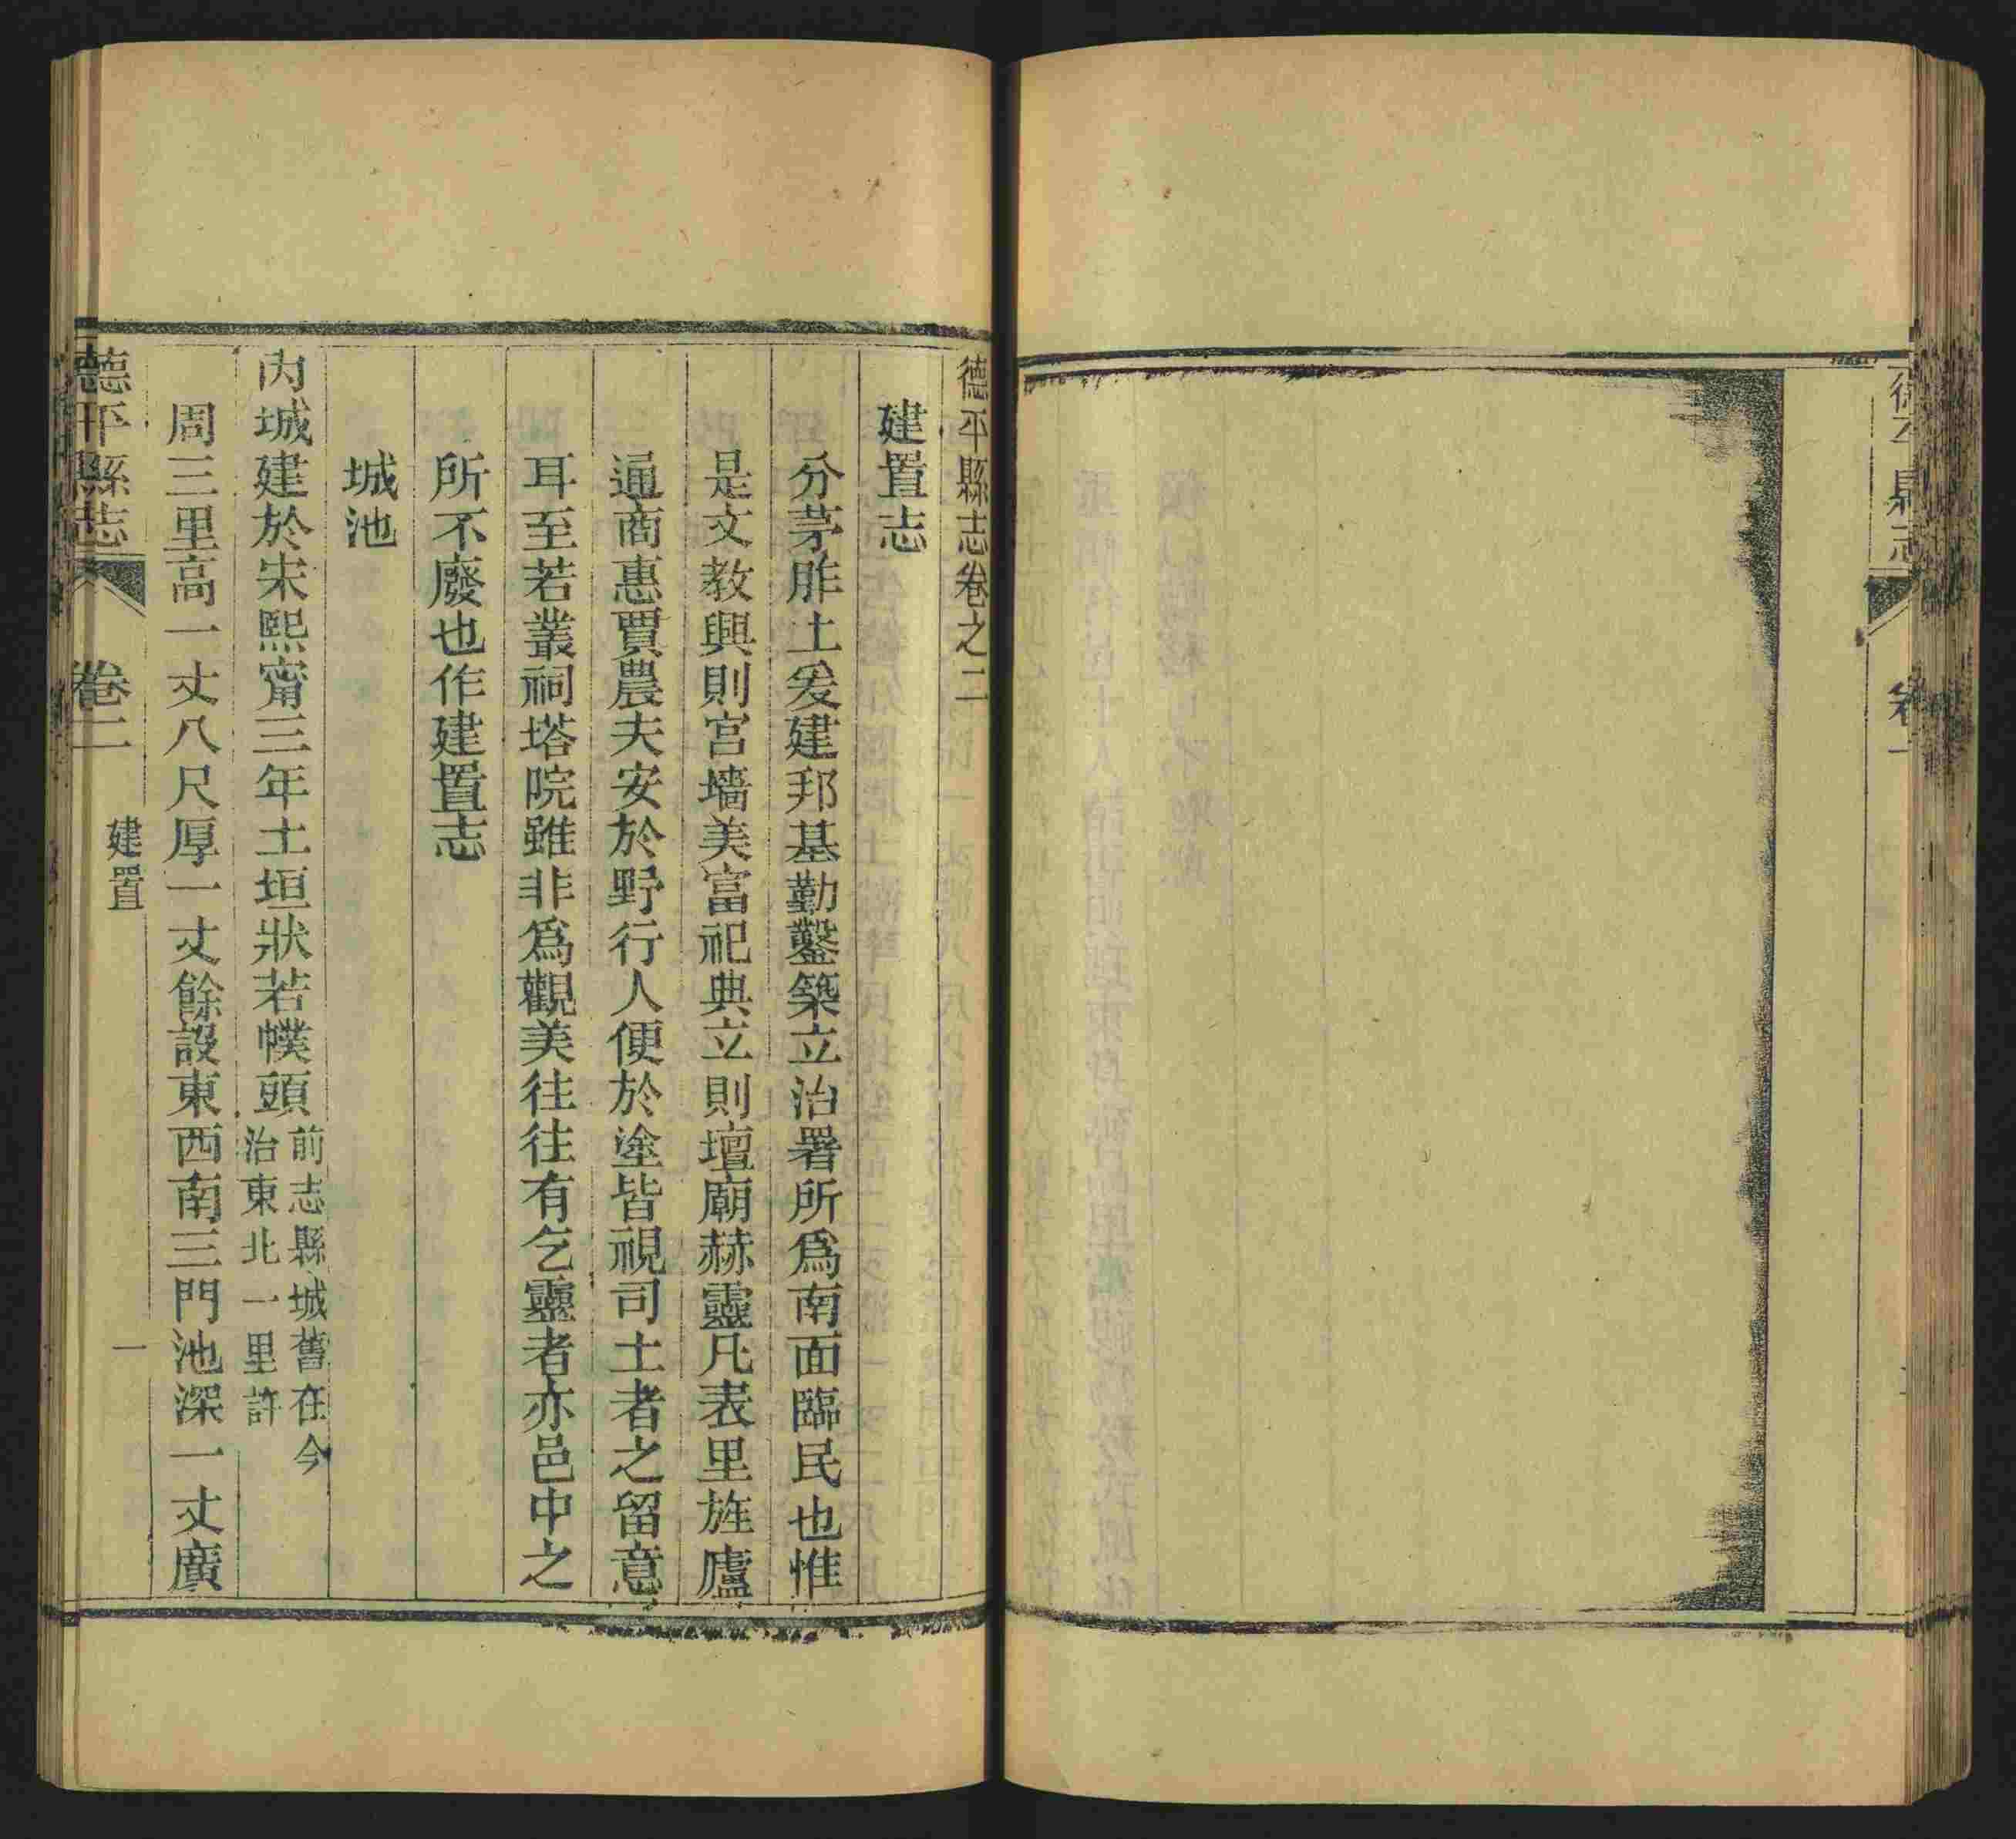 德平縣志
卷一
德平縣志卷之二
建置志
分茅胙土爰建邦基勤鑿築立治署所爲南面臨民也惟
是文教興則宮墻美富祀典立則壇廟赫靈凡表里旌廬
通商惠賈農夫安於野行人便於塗皆視司土者之留意
耳至若叢祠塔院雖非爲觀美往往有乞靈者亦邑中之
所不廢也作建置志
城池
內城建於宋熙甯三年土垣狀若幞頭前志縣城舊在今
治東北一里許
周三里高一丈八尺厚一丈餘設東西南三門池深一丈廣
德平縣志
卷二
建置
一